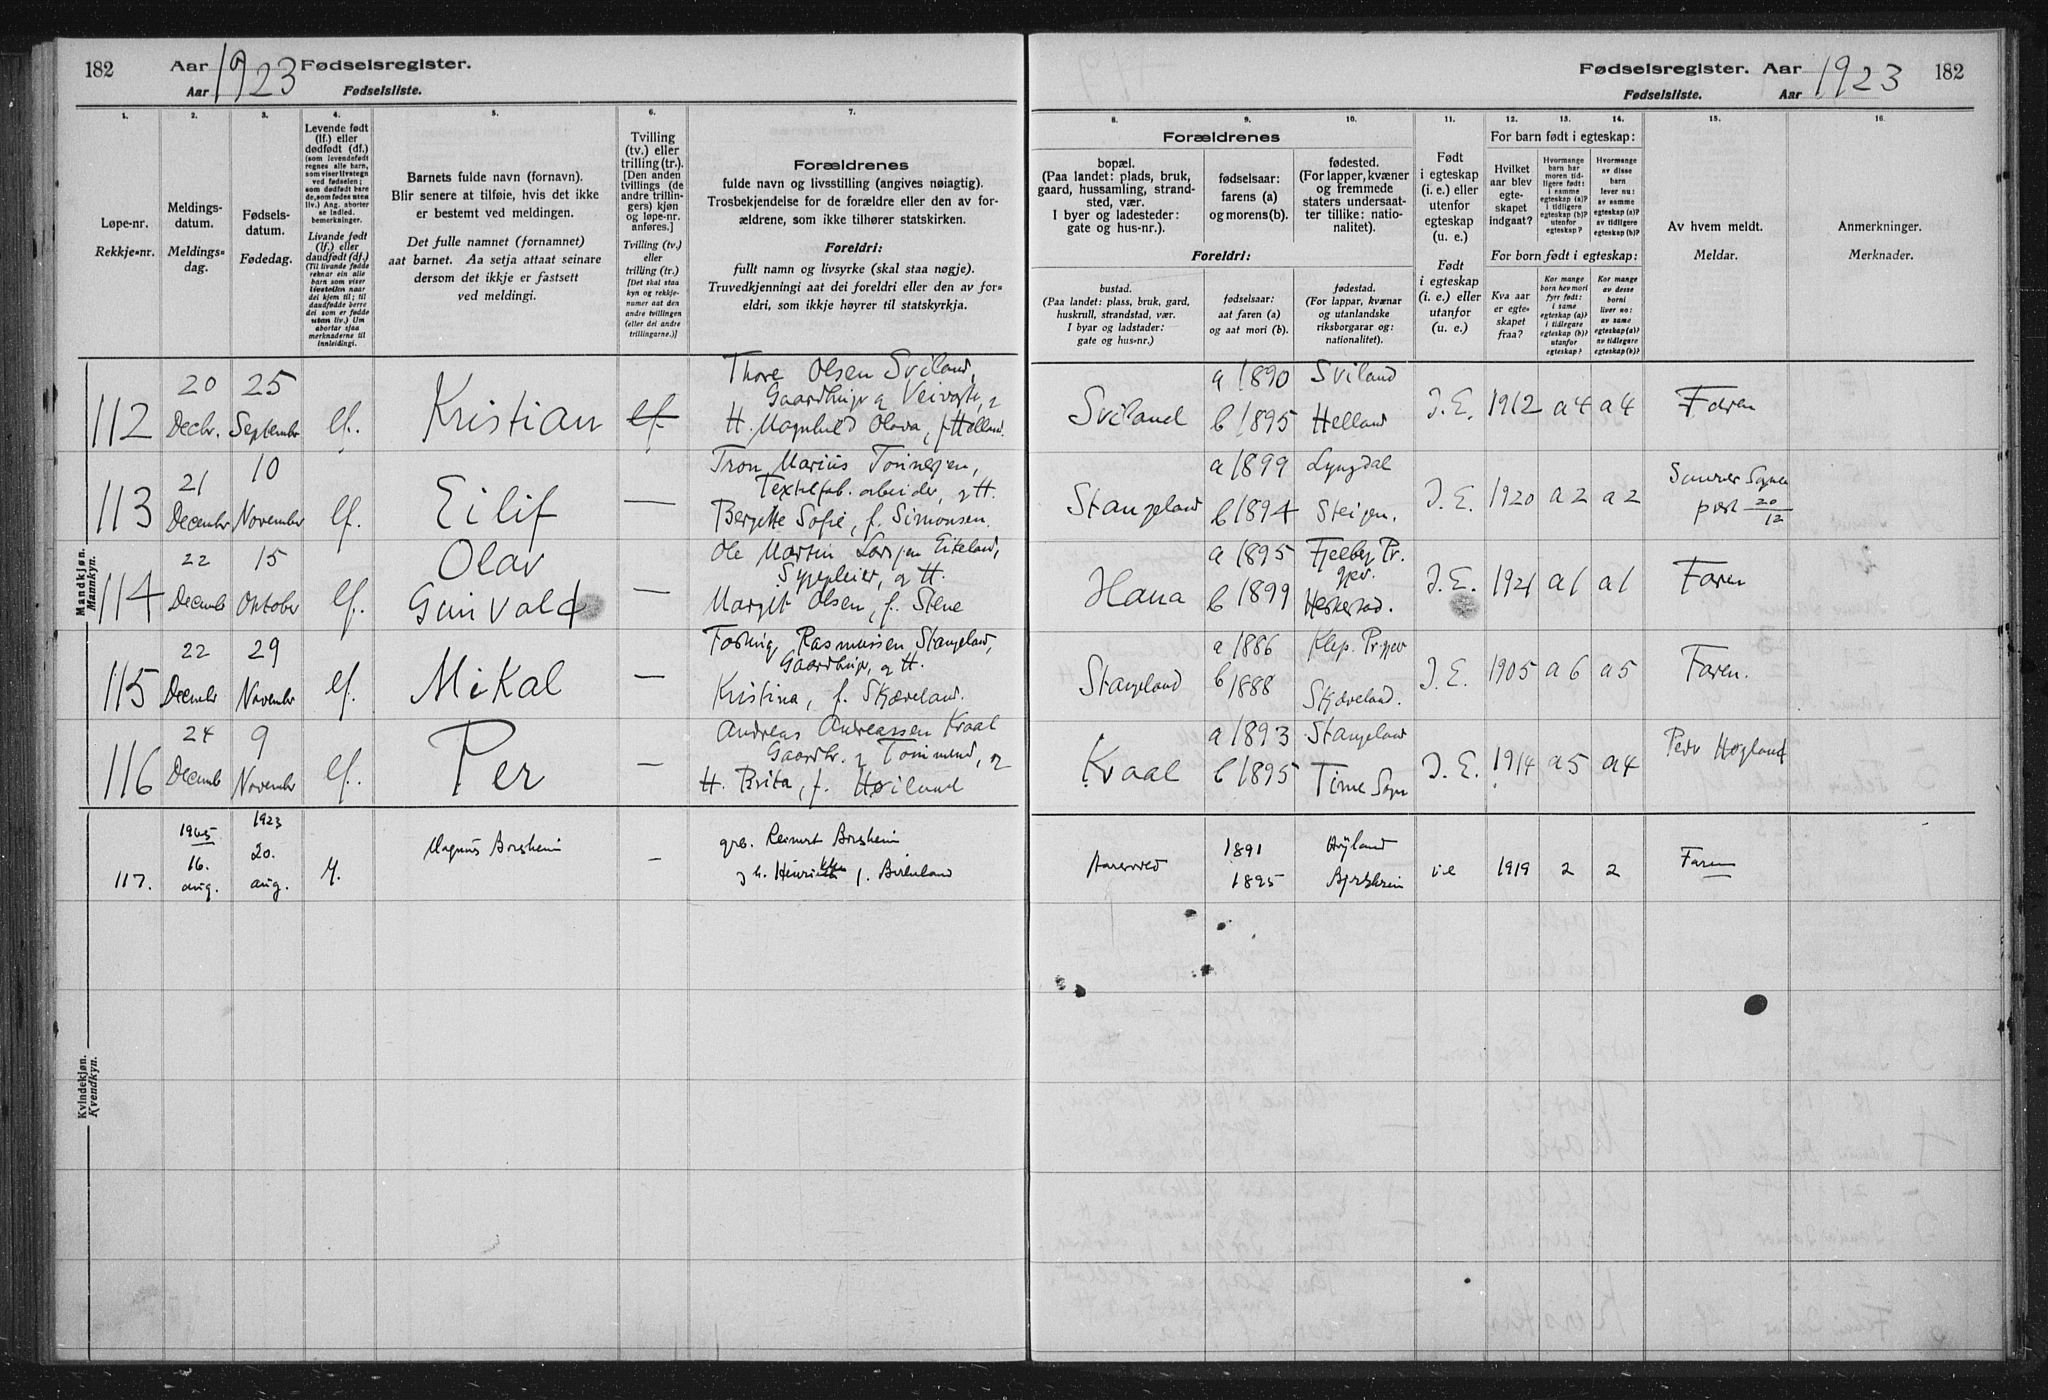 182 Aar 1923 Fødselsregister.
Aar Fødselsliste.
Fødselsregister. Aar 1923 182
Fødselsliste. Aar
1. 2. 3. 4. 5. 6. 7.
Løpe-nr.
Rekkje-nr.
Meldings-
datum.
Meldings-
dag.
Fødsels-
datum.
Fødedag.
Levende født
(lf.) eller
dødfødt (df.)
(som levendefødt
regnes alle barn,
som viser livstegn
ved fødselen;
som dødfødt bare
de, som fødes uten
liv.) Ang. aborter
se indled.
bemerkninger.
Livande født
(lf.) eller
daudfødt (df.)
(Til livande fødde
reknar ein alle
barn som viser
livstollen naar
dei kjem til; til
daudfødde berre
dei som er fødde
utan liv.) Um
abortar sjaa
merknaderne til
innleidingi.
Barnets fulde navn (fornavn).
Blir senere at tilføie, hvis det ikke
er bestemt ved meldingen.
Det fulle namnet (fornamnet)
aat barnet. Aa setja attaat seinare
dersom det ikkje er fastsett
ved meldingi.
Tvilling
(tv.) eller
trilling (tr.).
[Den anden
tvillings (de
andre trillin-
gers) kjøn
og løpe-nr.
anføres.]
Tvilling (tv.)
eller
trilling (tr.)
[Det skal staa
kyn og rekkje-
numer aat den
andre tvillingen
(eller dei andre
trillingarne.)]
Forældrenes
fulde navn og livsstilling (angives nøiagtig).
Trosbekjendelse for de forældre eller den av for-
ældrene, som ikke tilhører statskirken.
Foreldri:
fullt namn og livsyrke (skal staa nøgje).
Truvedkjenningi aat dei foreldri eller den av for-
eldri, som ikkje høyrer til statskyrkja.
8. 9. 10. 11. 12. 13. 14. 15. 16.
Forældrenes
bopæl.
(Paa landet: plads, bruk,
gaard, hussamling, strand-
sted, vær.
I byer og ladesteder:
gate og hus-nr.).
fødselsaar:
farens (a)
og morens (b).
fødested.
(For lapper, kvæner
og fremmede
staters undersaat-
ter tillike: natio-
nalitet).
Foreldri:
bustad.
(Paa landet: plass, bruk, gard,
huskrull, strandstad, vær.
I byar og ladstader:
gate og hus-nr.)
fødselsaar:
aat faren (a)
og aat mori (b).
fødestad.
(For lappar, kvænar
og utanlandske
riksborgarar og:
nationalitet).
Født
i egteskap
(i. e.) eller
utenfor
egteskap
(u. e.)
Født
i egteskap
(i. e.) eller
utanfor
(u. e.)
For barn født i egteskap:
Hvilket
aar blev
egte-
skapet
indgaat?
Hvormange
barn har
moren tid-
ligere født:
i samme
egteskap (a)?
i tidligere
egteskap (b)?
utenfor
egteskap?
Hvormange
av disse
barn
lever nu:
av samme
egteskap (a)?
av tidligere
egteskap (b)?
For born født i egteskap:
Kva aar
er egte-
skapet
fraa?
Kor mange
born hev mori
fyrr født:
i same
egteskap (a)?
i tidlegare
egteskap (b)?
utanfor
egteskap?
Kor mange
av desse
borni
liver no:
av same
egteskap (a)?
av tidlegare
egteskap (b)?
Av hvem meldt.
Meldar.
Anmerkninger.
Merknader.
Mandkjøn.
Mannkyn.
112 20 Decbr. 25 September lf. Kristian lf.
Thore Olsen Sviland,
H. Magnhild Olava, f. Helland.
Sviland a 1890 b 1895 Sviland Helland I. E. 1912 a 4 a 4 Faren
113 21 December 10 November lf. Eilif —
Tron Marius Tønnesen,
Textilfab. arbeider, og H.
Bergitte Sofie, f. Simonsen.
Stangeland a 1899 b 1894 Lyngdal Steigen. I. E. 1920 a 2 a 2 20/12
114 22 Decemb 15 Oktober lf. Olav
Gunvald —
Ole Martin Larsen Eikeland,
og H.
Margit Olsen, f. Stene
Hana a 1895 b 1899 Fjelberg Pr.
gjev.
Heskestad. I. E. 1921 a 1 a 1 Faren
115 22 Decembr 29 Novembr lf. Mikal —
Rasmussen Stangeland,
Gaardbruger, og H.
Kristina, f. Skjæveland.
Stangeland a 1886 b 1888 Klep. Pr.gjev Skjæveland. I. E. 1905 a 6 a 5 Faren.
116 24 Decemb 9 Novembr lf. Per —
Andreas Andreassen Kraal
Gaardbr. og Tømmerm, og
H. Brita, f. Høiland
Kraal a 1893 b 1895 Stangeland Time Sogn I. E. 1914 a 5 a 4 Peder Høgland
117. 1945 16. aug. 1923 20. aug. lf. Magnus Borsheim —
grb. Reinert Borsheim
f. Birkeland
1891 Høyland
1895 i e 1919 2 2 Faren
Kvindekjøn.
Kvendkyn.